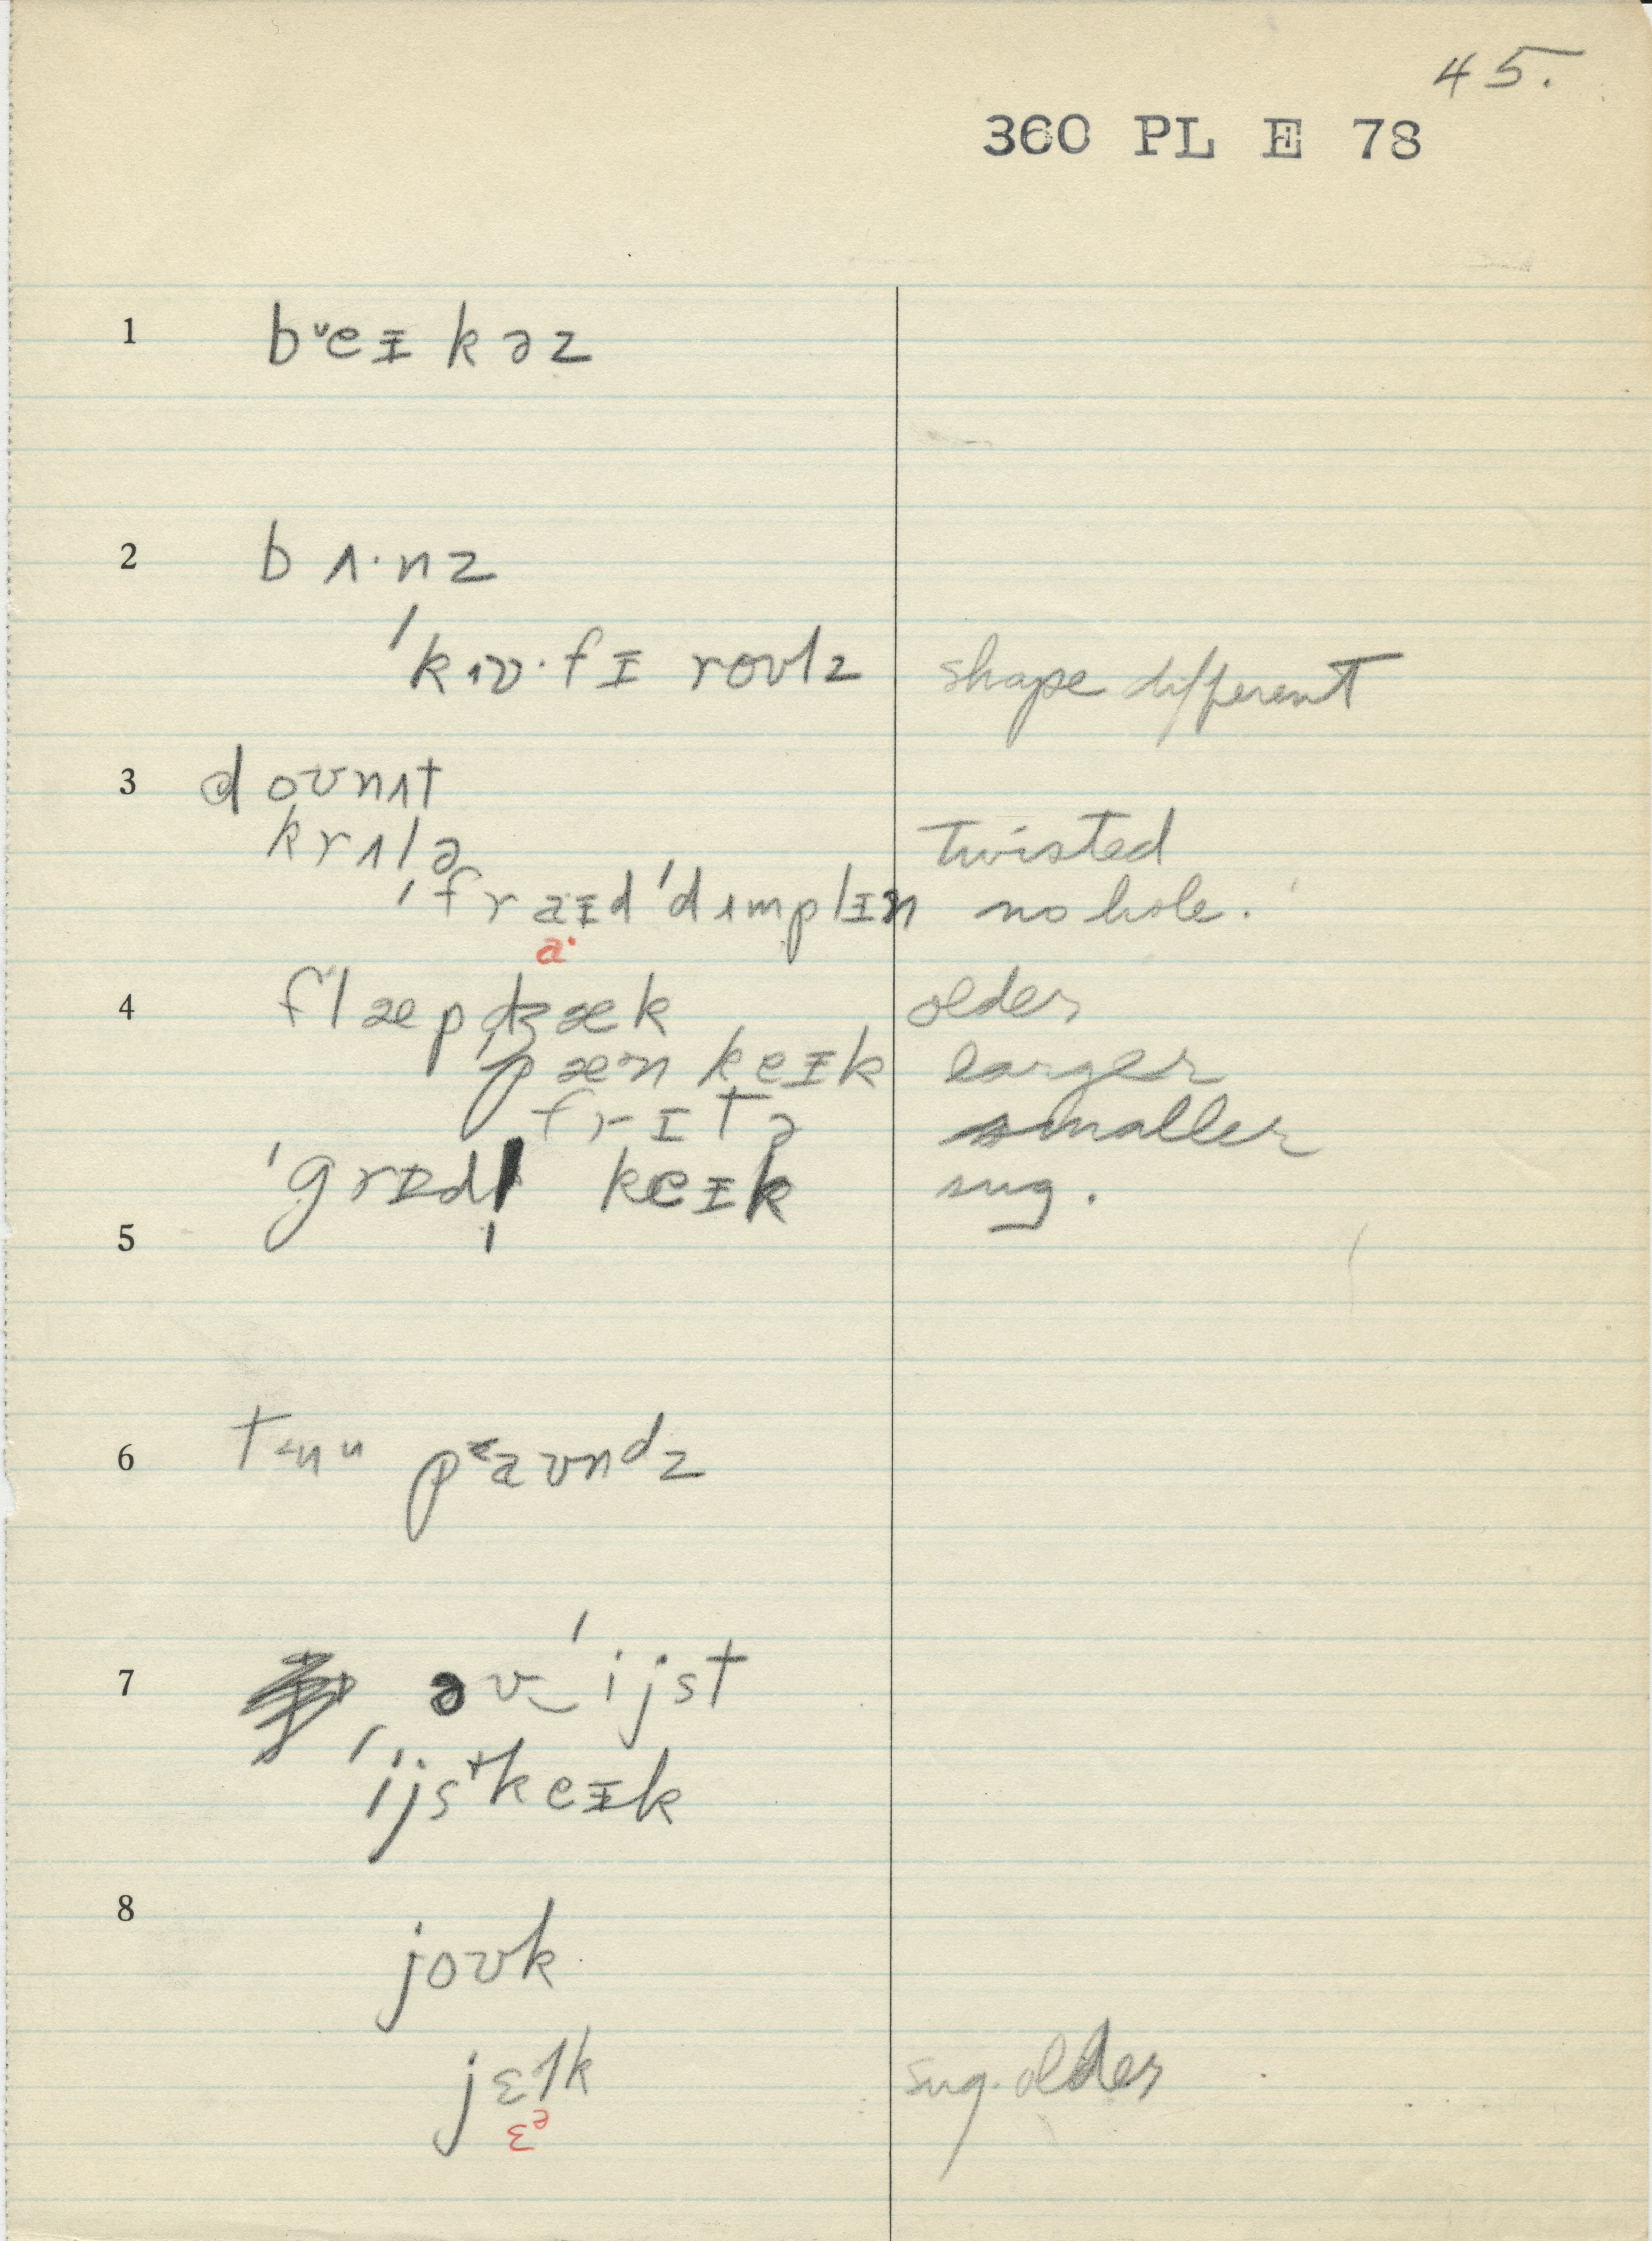 45.
360 PL E 78
1 bᵛeɪkəz
2 bʌ·nz
'kɪʊ·fɪ roʊlz shape different
3 doʊnʌt
krʌlə Twisted
'fraɪd 'dʌmplɪn no hole.
a·
4 flæpdʒæk older
pæn keɪk larger
frɪtə smaller
'grɪdl̩ keɪk sug.
5
6 pᵋaʊndz
7 əv‿'ijst
'ijsᵗkeɪk
8 joʊk
jɛlk sug. older
ɛᵊ